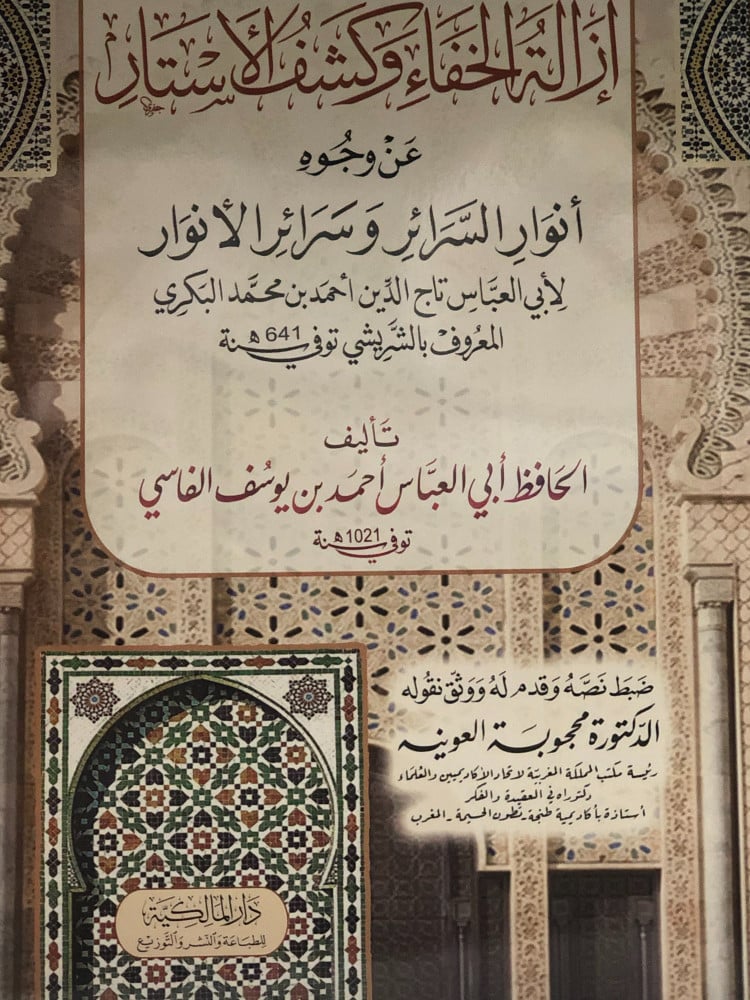 إِزَالَةُ الخَفَاءِ وَكَشْفُ الأَسْتَارِ
عَنْ وُجُوهِ
أَنْوَارِ السَّرَائِرِ وَسَرَائِرِ الأَنْوَار
لِأَبِي العَبَّاسِ تَاج الدِّين أحمَد بن محمَّد البَكرِي
المَعرُوف بالشَّرِيشي توفي سنة 641 هـ
تَأليف
الحَافِظ أَبي العَبَّاس أَحمَد بن يُوسُف الفَاسي
توفي سنة 1021 هـ
ضَبَطَ نَصَّهُ وَقَدم لَهُ وَوَثَّق نقُوله
الدّكتورة محجوبَة العوينه
رئيسة مكتب المملكة المغربية لاتحاد الأكاديميين والعُلماء
دكتوراه في العقيدة والفكر
أستاذة بأكاديمية طنجة - تطون الحسيمة - المغرب
دَارُ المَالِكِيَّة
للطبَاعَة وَالنَّشر وَالتَّوزيع